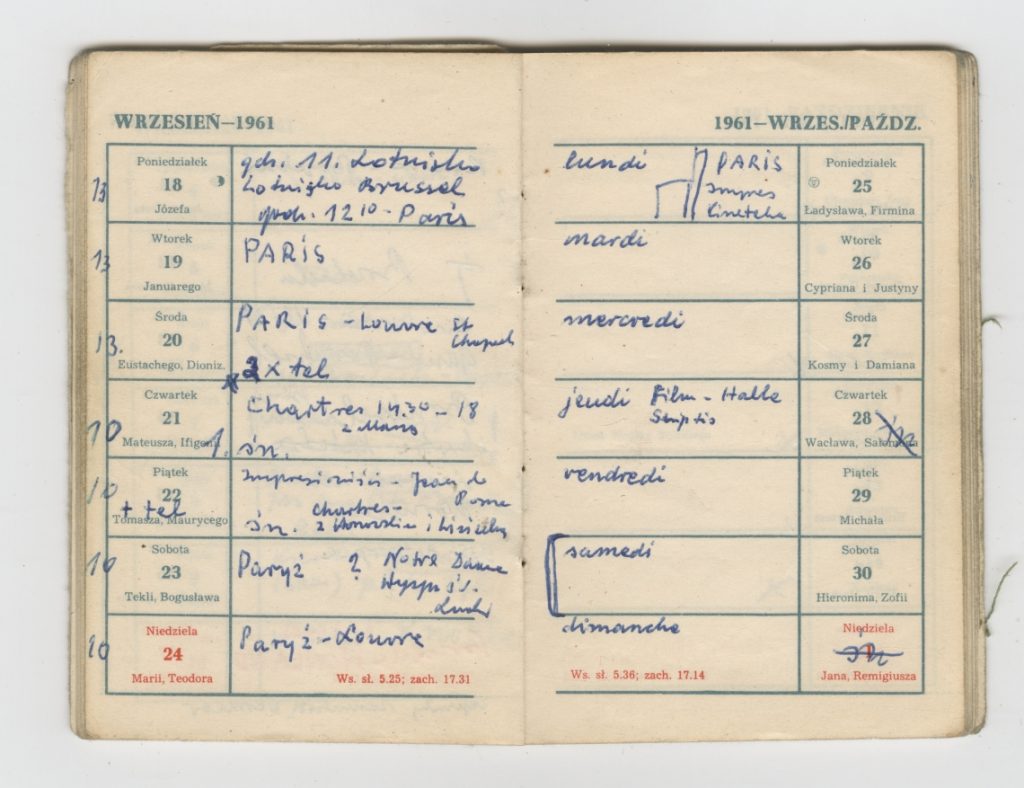 WRZESIEŃ—1961
13
Poniedziałek
18
Józefa
godz. 11. Lotnisko
Lotnisko Brussel
godz. 12 10 - Paris
13
Wtorek
19
Januarego
PARIS
13.
Środa
20
Eustachego, Dioniz.
PARIS - Louvre St
Chapell
2 x tel
10
Czwartek
21
Mateusza, Ifigenii
Chartres 14.30 - 18
1. śn.
10
Piątek
22
+ tel
Tomasza, Maurycego
Impresioniści - Jeau de
Pome
Chartres -
śn. z
10
Sobota
23
Tekli, Bogusława
Paryż ? Notre Dame
Wyspa św.
10
Niedziela
24
Marii, Teodora
Paryż - Louvre
Ws. sł. 5.25; zach. 17.31
1961—WRZES./PAŹDZ.
lundi PARIS
Kineteka
Poniedziałek
25
Ładysława, Firmina
mardi
Wtorek
26
Cypriana i Justyny
mercredi
Środa
27
Kosmy i Damiana
jeudi Film - Halle
Striptis
Czwartek
28
Wacława, Salomona
vendredi
Piątek
29
Michała
samedi
Sobota
30
Hieronima, Zofii
dimanche
Ws. sł. 5.36; zach. 17.14
Niedziela
1
Jana, Remigiusza